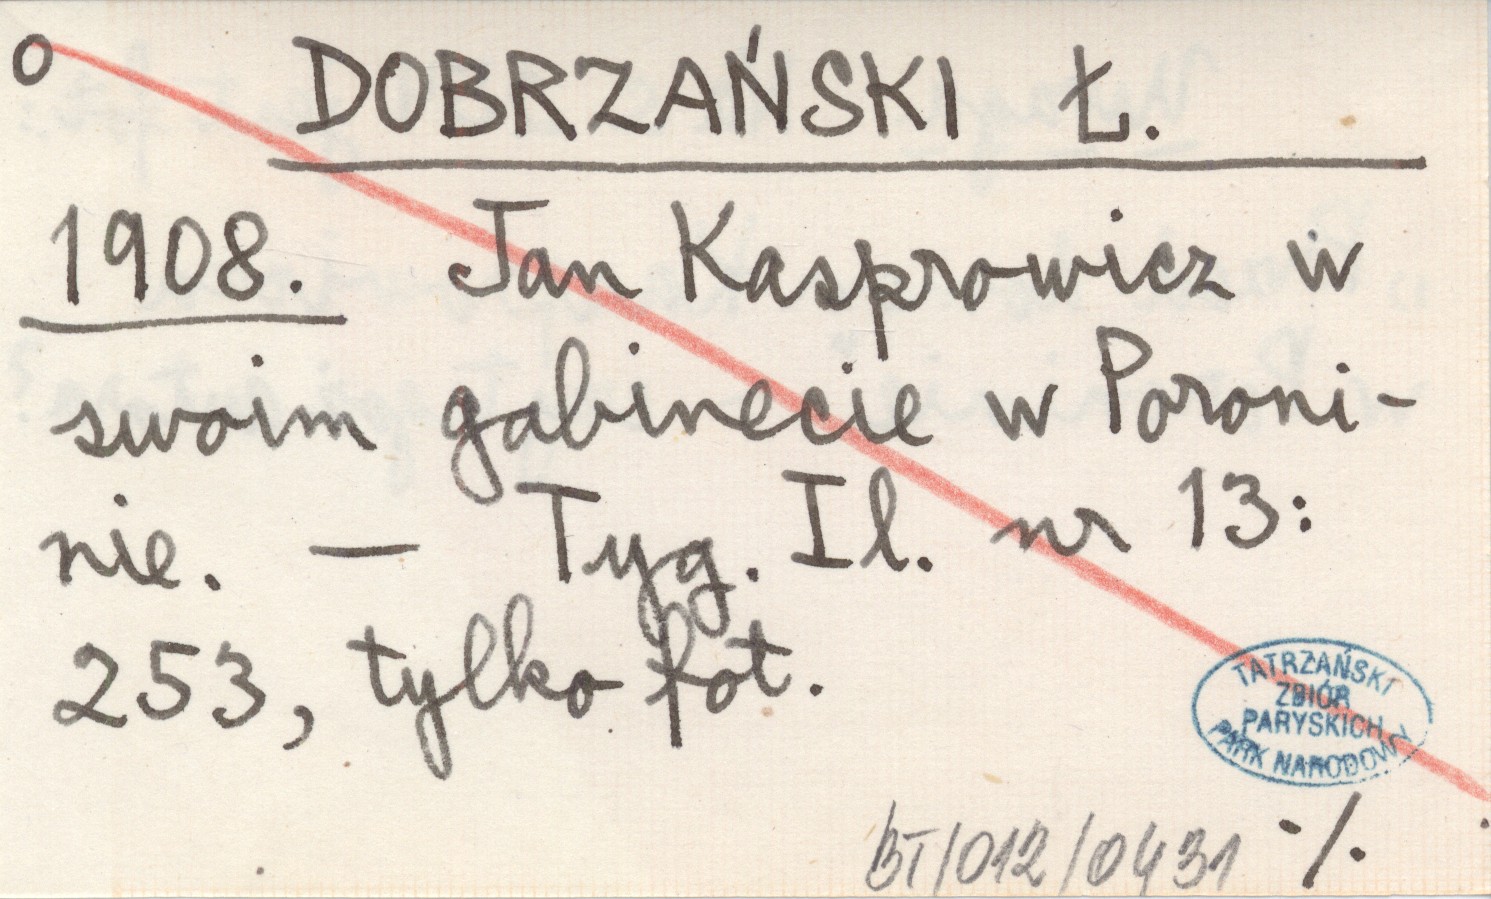 o DOBRZAŃSKI Ł.
1908. Jan Kasprowicz w
swoim gabinecie w Poroni-
nie. — Tyg. Il. nr 13:
253, tylko fot.
TATRZAŃSKI
ZBIÓR
PARYSKICH
PARK NARODOWY
BT/012/0431 ./.